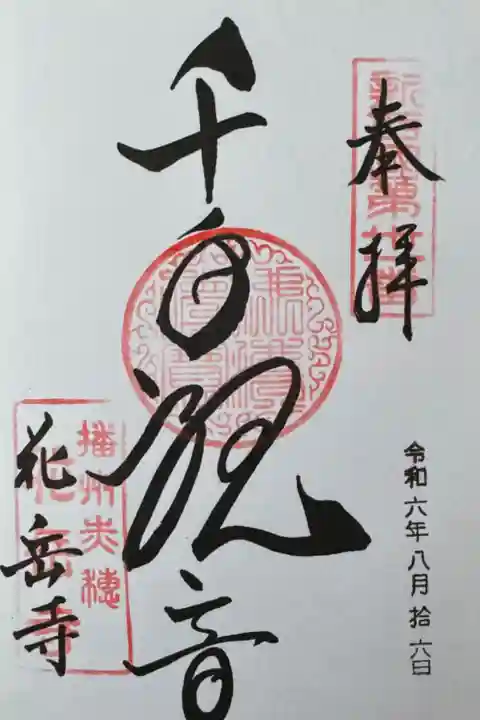 奉拝
令和六年八月拾六日
千手観音
播州赤穂
花岳寺
花岳寺